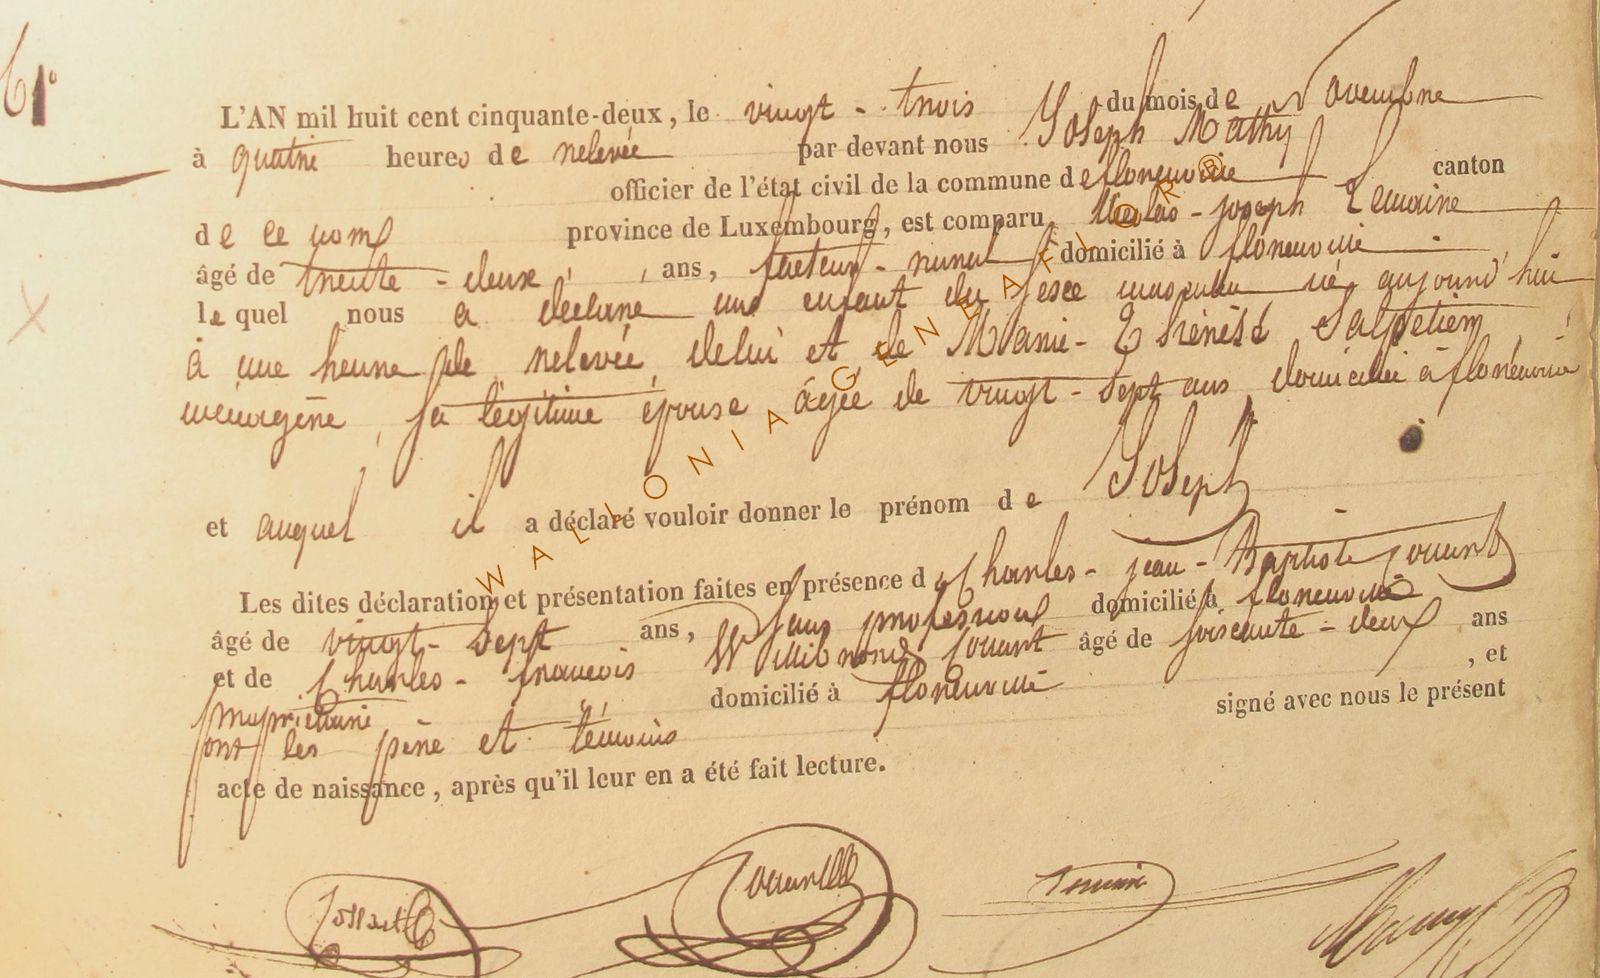 61°
L'AN mil huit cent cinquante-deux, le vingt - trois du mois de Novembre
à quatre heures de relevée par devant nous Joseph Mathy
officier de l'état civil de la commune de florenville canton
de ce nom province de Luxembourg, est comparu, Nicolas - joseph Lemoine
âgé de trente - deux ans, facteur - rural domicilié à florenville
lequel nous a déclaré un enfant du sexe masculin né aujourd'hui
à une heure de relevée, de lui et de Marie - Thérèse Salpetier
ménagère, sa légitime épouse âgée de vingt - sept ans domiciliée à florenville
et auquel il a déclaré vouloir donner le prénom de Joseph
Les dites déclaration et présentation faites en présence de Charles - jean - Baptiste
âgé de vingt - sept ans, sans profession domicilié à florenville
et de Charles - françois Willibrord âgé de soixante - deux ans
propriétaire domicilié à florenville, et
ont les père et témoins signé avec nous le présent
acte de naissance, après qu'il leur en a été fait lecture.
WALLONIA GENEAFLOR®